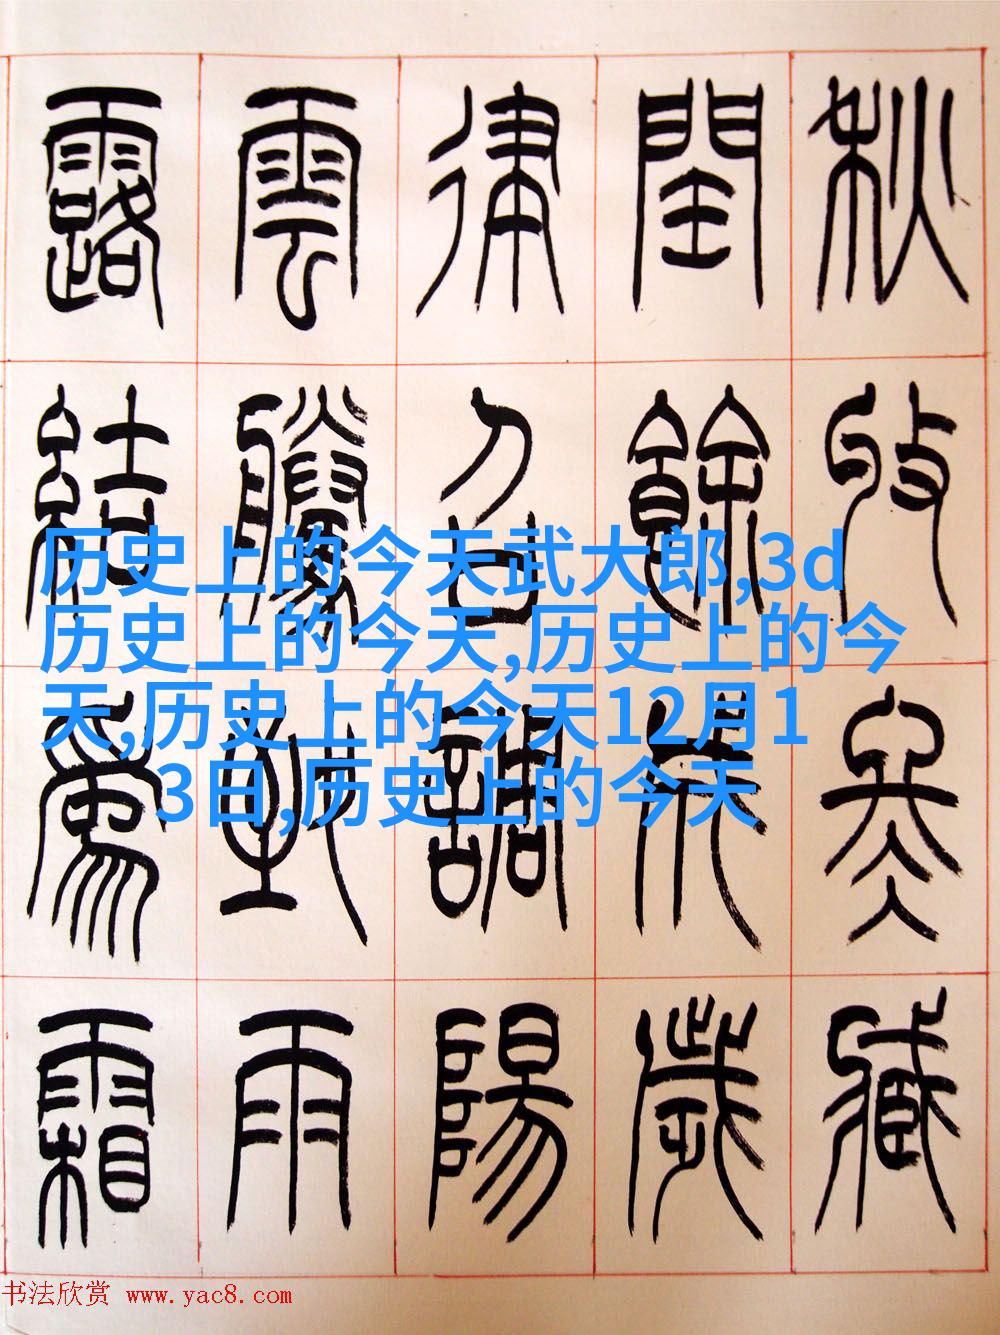 秋收冬臧
閏餘成歲
律召調陽
雲騰致雨
露結爲霜
历史上的今天武大郎,3d
历史上的今天,历史上的今
天,历史上的今天12月1
3日,历史上的今天
书法欣赏 www.yac8.com